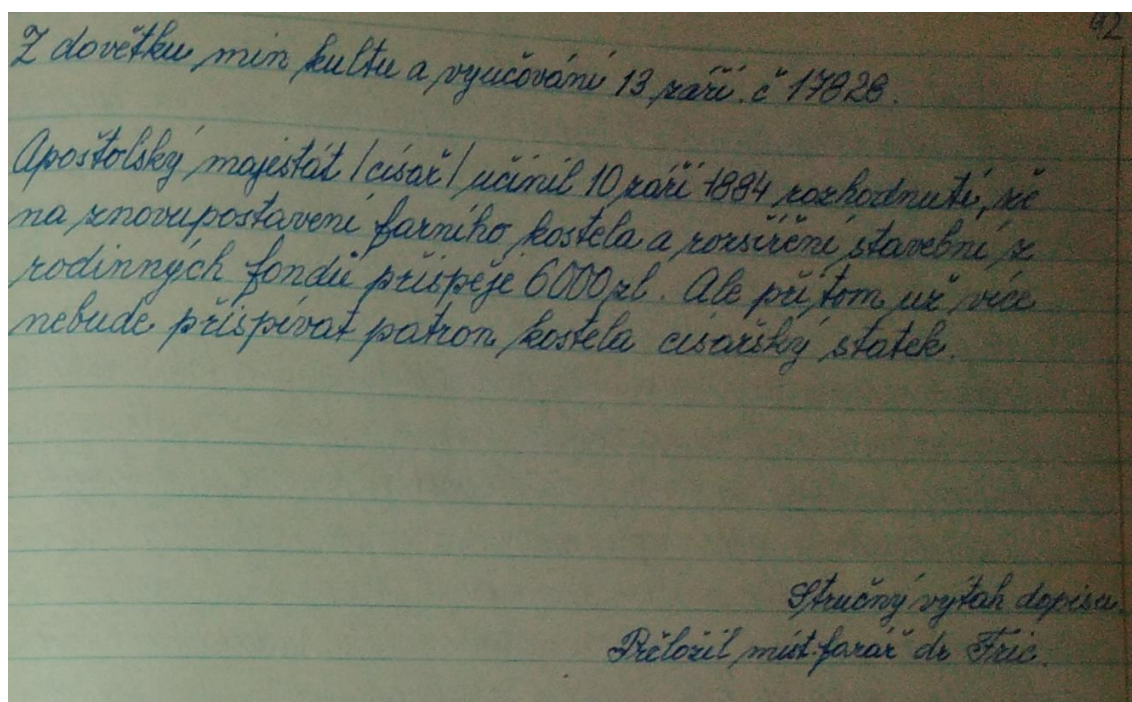 42
Z dovětku min kultu a vyučování 13 září. č 17828.
Apoštolský majestát /císař/ učinil 10 září 1884 rozhodnutí, že
na znovupostavení farního kostela a rozšíření stavební z
rodinných fondů přispěje 6000 zl. Ale při tom už více
nebude přispívat patron kostela císařský statek.
Stručný výtah dopisu.
Přeložil míst. farář dr Fric.